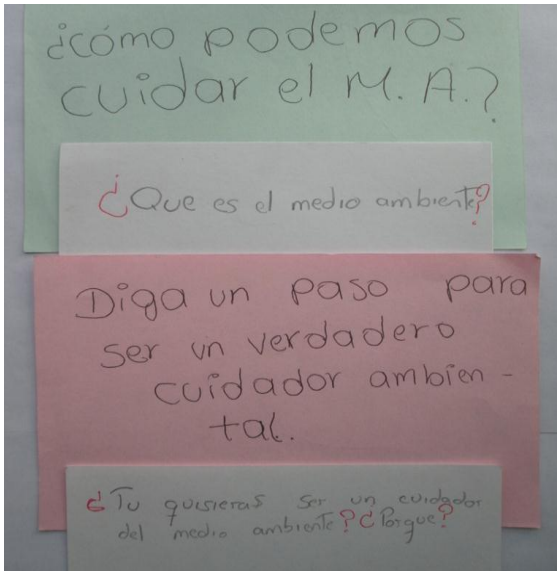 ¿cómo podemos
cuidar el M. A.?
¿Que es el medio ambiente?
Diga un paso para
ser un verdadero
cuidador ambien-
tal.
¿Tu quisieras ser un cuidador
del medio ambiente? ¿Porque?